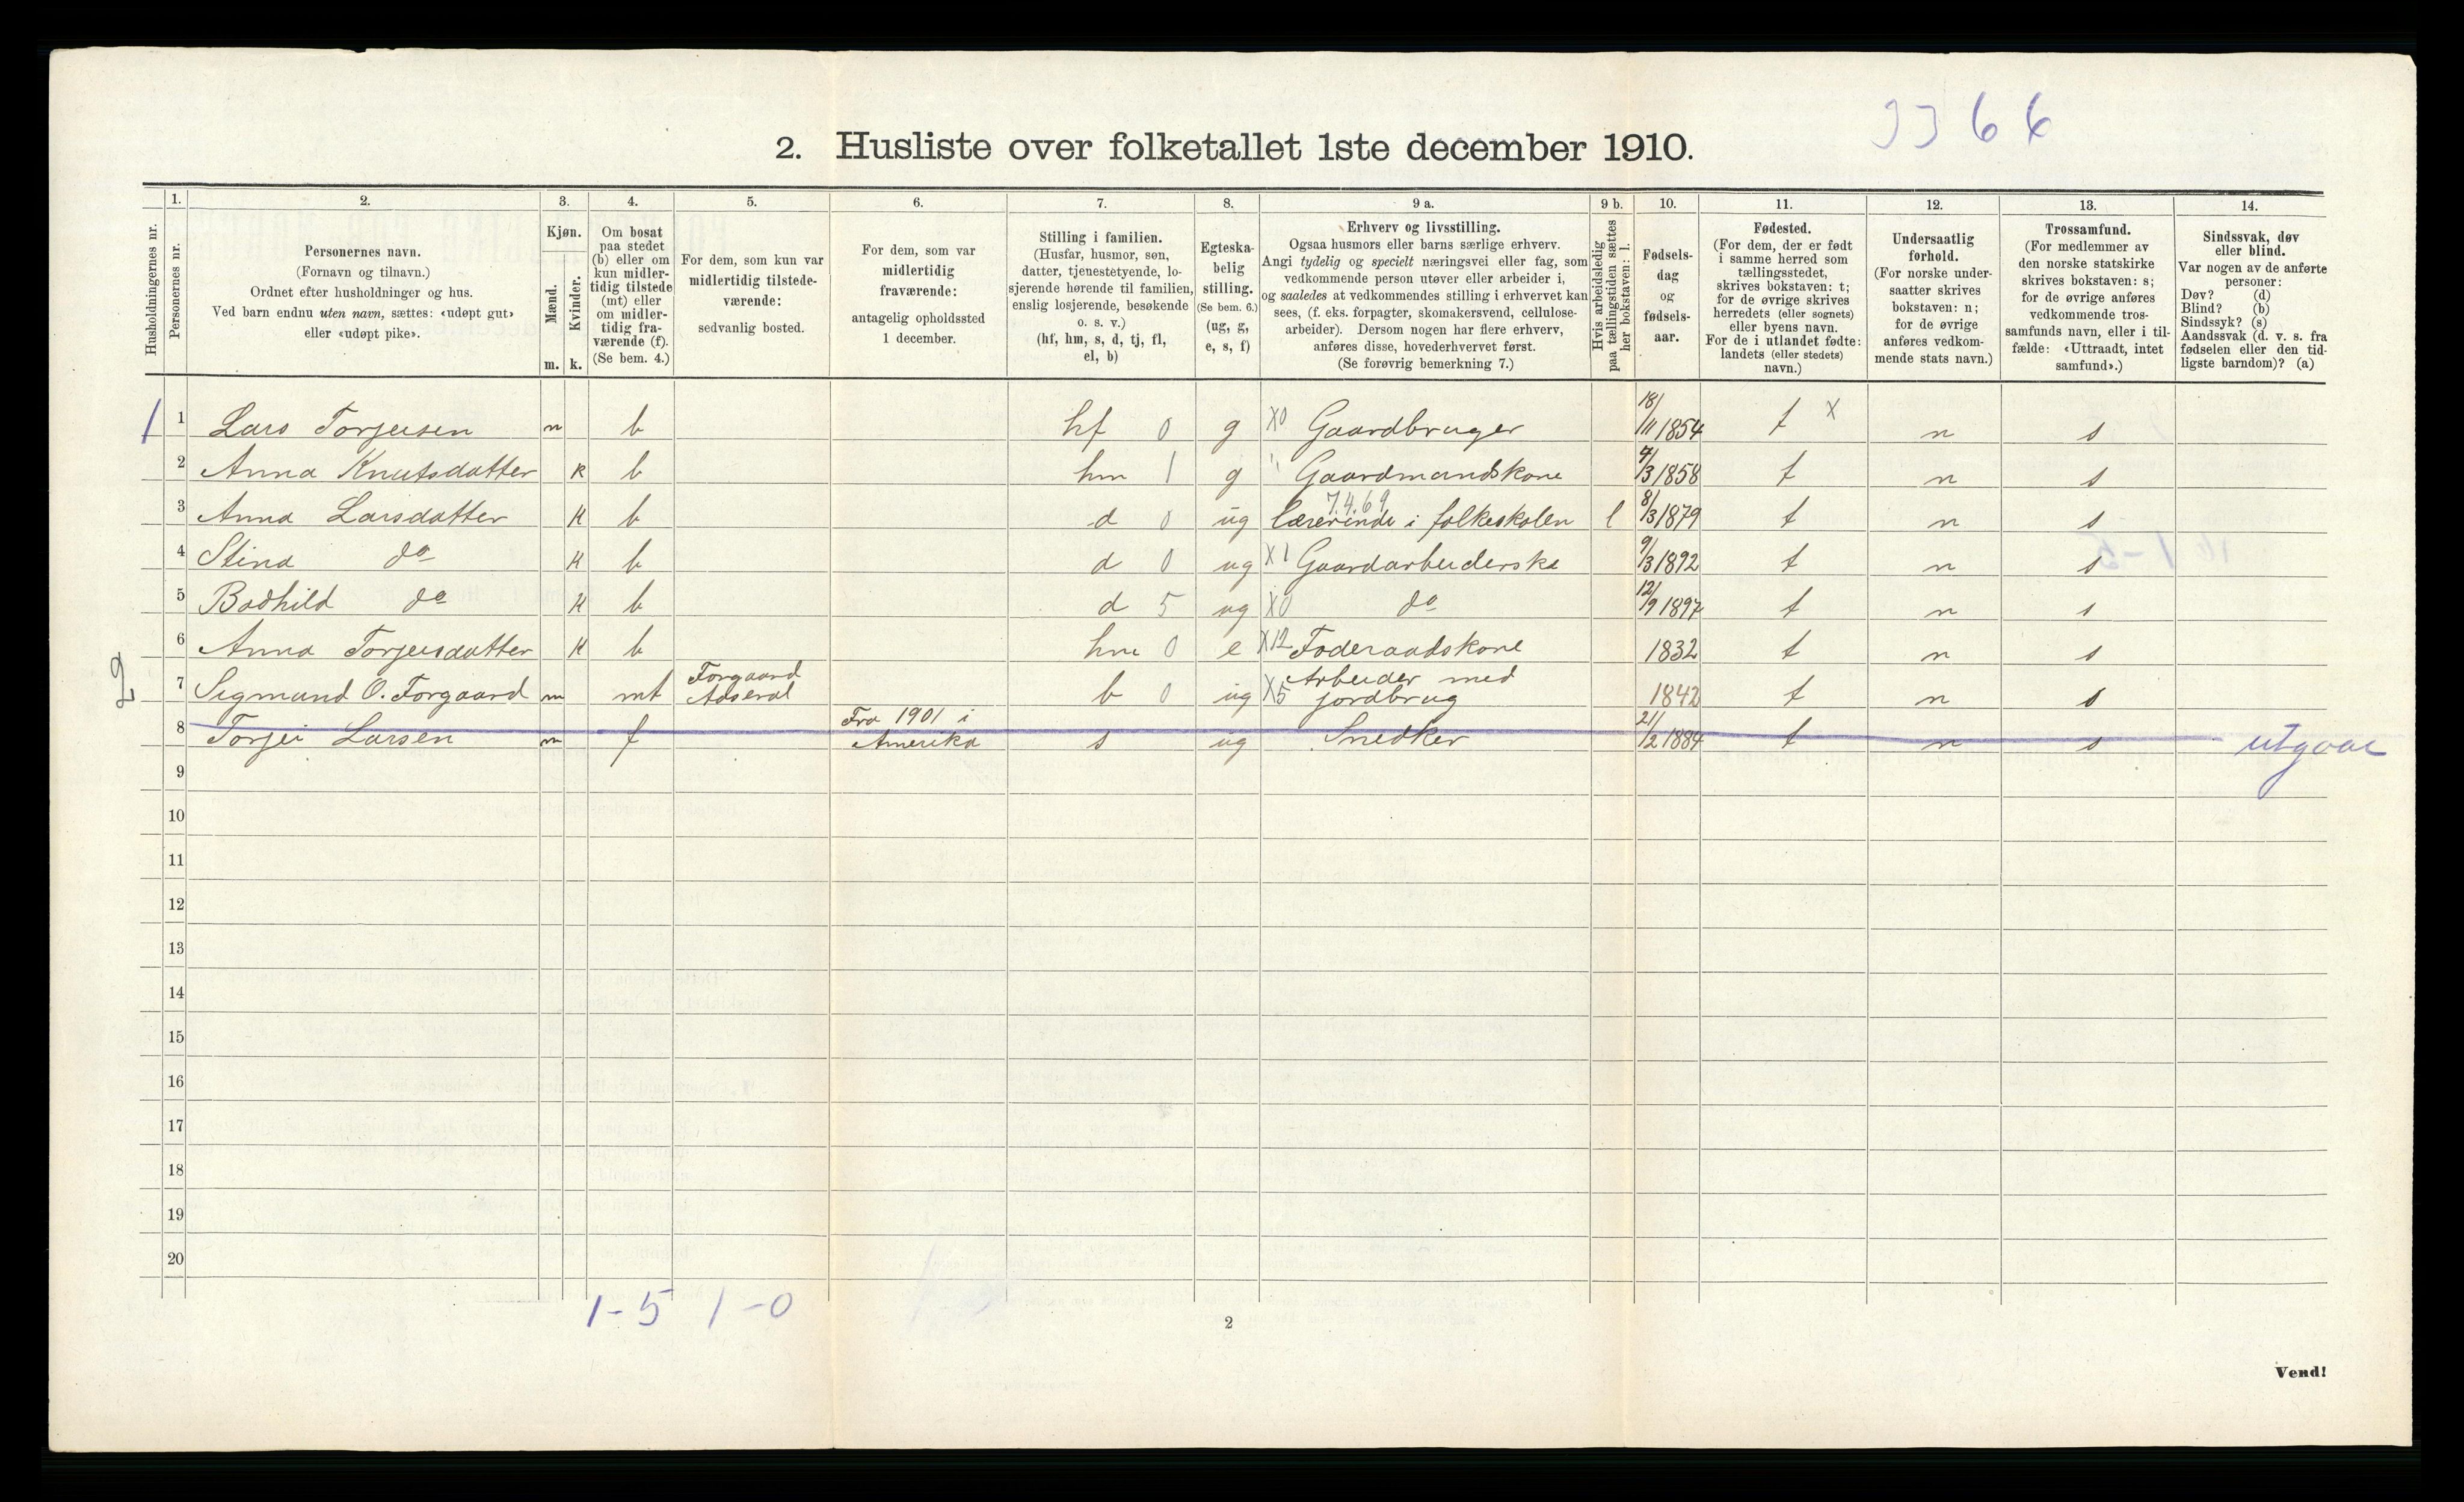 3366
2. Husliste over folketallet 1ste december 1910.
1. 2. 3. 4. 5. 6. 7. 8. 9 a. 9 b. 10. 11. 12. 13. 14.
Husholdningernes nr.
Personernes nr.
Personernes navn.
(Fornavn og tilnavn.)
Ordnet efter husholdninger og hus.
Ved barn endnu uten navn, sættes: «udøpt gut»
eller «udøpt pike».
Kjøn.
Mænd.
Kvinder.
m. k.
Om bosat
paa stedet
(b) eller om
kun midler-
tidig tilstede
(mt) eller
om midler-
tidig fra-
værende (f).
(Se bem. 4.)
For dem, som kun var
midlertidig tilstede-
værende:
sedvanlig bosted.
For dem, som var
midlertidig
fraværende:
antagelig opholdssted
1 december.
Stilling i familien.
(Husfar, husmor, søn,
datter, tjenestetyende, lo-
sjerende hørende til familien,
enslig losjerende, besøkende
o. s. v.)
(hf, hm, s, d, tj, fl,
el, b)
Egteska-
belig
stilling.
(Se bem. 6.)
(ug, g,
e, s, f)
Erhverv og livsstilling.
Ogsaa husmors eller barns særlige erhverv.
Angi tydelig og specielt næringsvei eller fag, som
vedkommende person utøver eller arbeider i,
og saaledes at vedkommendes stilling i erhvervet kan
sees, (f. eks. forpagter, skomakersvend, cellulose-
arbeider). Dersom nogen har flere erhverv,
anføres disse, hovederhvervet først.
(Se forøvrig bemerkning 7.)
Hvis arbeidsledig
paa tællingstiden sættes
her bokstaven: l.
Fødsels-
dag
og
fødsels-
aar.
Fødested.
(For dem, der er født
i samme herred som
tællingsstedet,
skrives bokstaven: t;
for de øvrige skrives
herredets (eller sognets)
eller byens navn.
For de i utlandet fødte:
landets (eller stedets)
navn.)
Undersaatlig
forhold.
(For norske under-
saatter skrives
bokstaven: n;
for de øvrige
anføres vedkom-
mende stats navn.)
Trossamfund.
(For medlemmer av
den norske statskirke
skrives bokstaven: s;
for de øvrige anføres
vedkommende tros-
samfunds navn, eller i til-
fælde: «Uttraadt, intet
samfund».)
Sindssvak, døv
eller blind.
Var nogen av de anførte
personer:
Døv? (d)
Blind? (b)
Sindssyk? (s)
Aandssvak (d. v. s. fra
fødselen eller den tid-
ligste barndom)? (a)
1 1 Lars Torjeisen m b hf 0 g X0 Gaardbruger 18/11 1854 t X n s
2 Anna Knutsdatter k b hm 1 g " Gaardmandskone 7/3 1858 t n s
7.4.69
3 Anna Larsdatter k b d 0 ug Lærerinde i folkeskolen l 8/3 1879 t n s
4 Stina do k b d 0 ug X1 Gaardarbeiderske 9/3 1892 t n s
5 Bodhild do k b d 5 ug X0 do 12/9 1897 t n s
6 Anna Torjeisdatter k b hm 0 e X12 Foderaadskone 1832 t n s
Forgaard Arbeider med
7 Sigmund O. Forgaard m mt Adseral b 0 ug X5 jordbrug 1842 t n s
Fra 1901 i
8 Torjei Larsen m f Amerika s ug Snedker 21/2 1884 t n s utgaar
9
10
11
12
13
14
15
16
17
18
19
20
1-5 1-0
2
Vend!